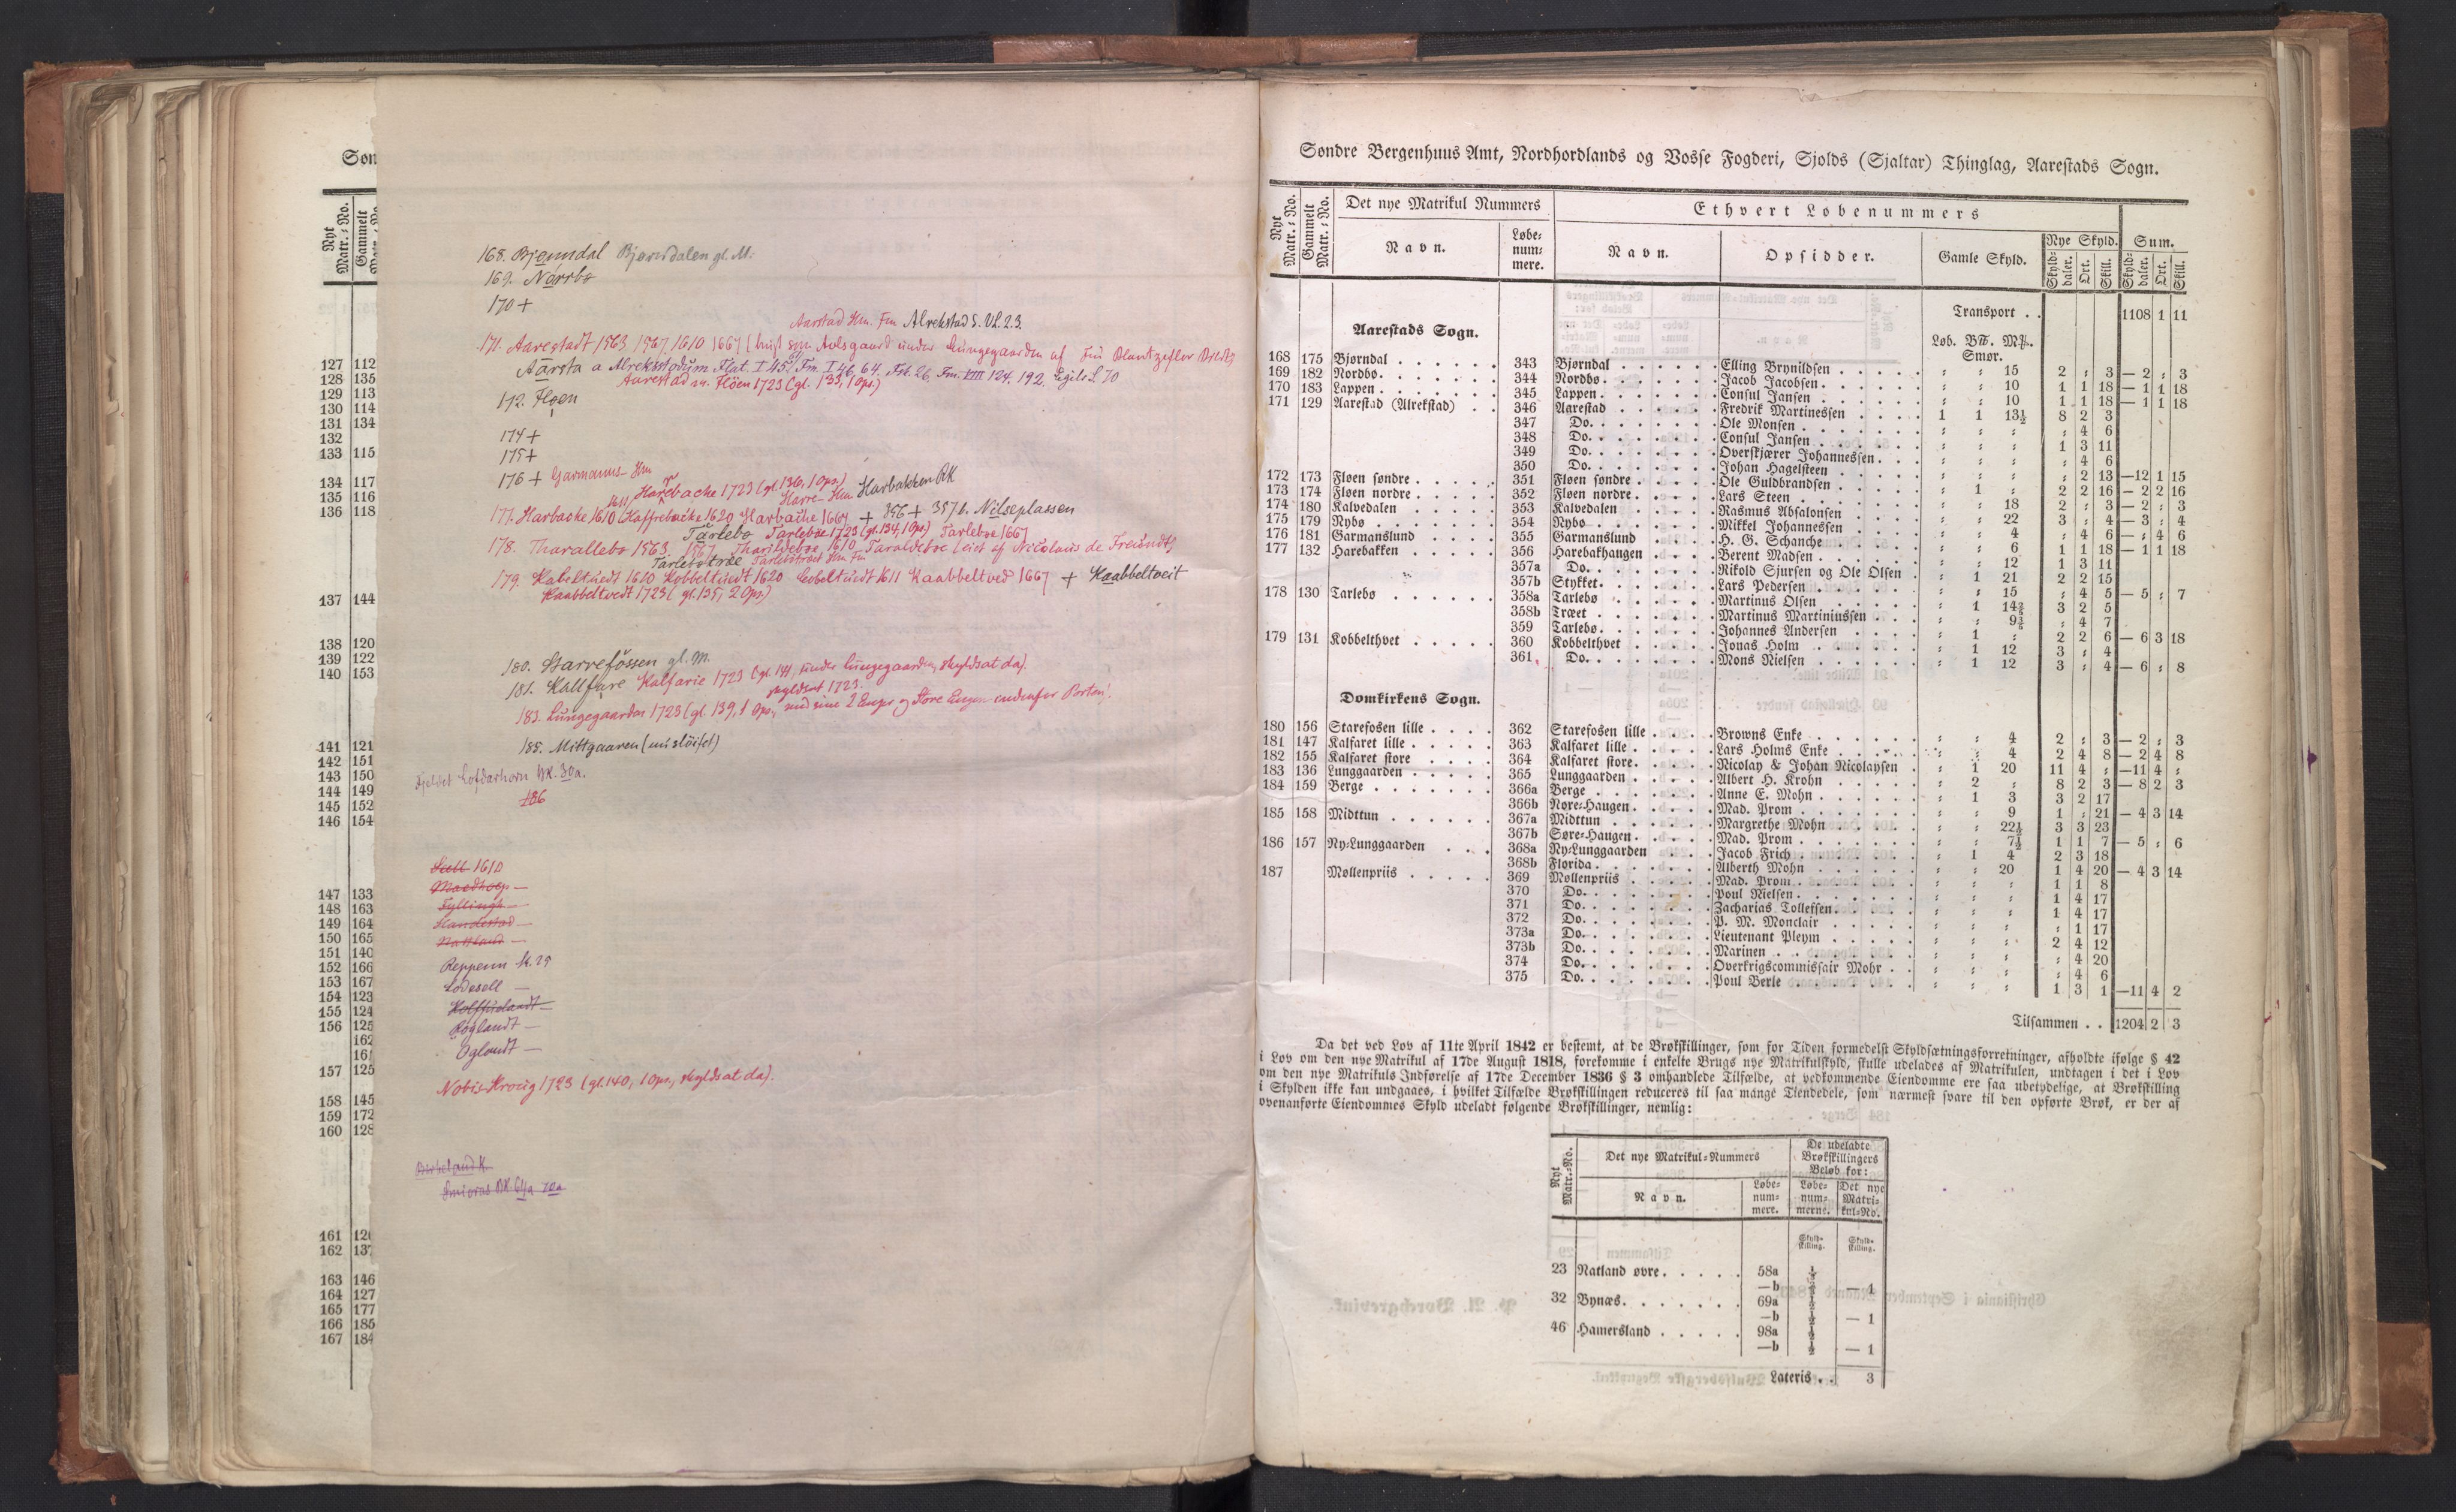 Søn
Nyt Matr.=No.
Gammelt Matr.=No.
127 112
128 135
129 113
130 114
131 134
132
133 115
134 117
135 116
136 118
137 144
138 120
139 122
140 153
141 121
142 151
143 150
144 149
145 152
146 154
147 133
148 163
149 164
150 165
151 140
152 166
153 167
154 123
155 124
156 125
162
161
157 125
158 145
159 172
160 128
161 126
162 137
163 146
164 127
165 177
166 185
167 184
168. Bjønndal Bjørndalen gl. M.
169. Norrbø
170 +
Aarstad Hm. Fm Alrekstad S. VL. 2.3.
171. Aarestadt 1563 1567. 1610 1667 (brugt som Avlsgaard under Lungegaarden af
Aarsta a Alreksstodum Flat. I 45. Fm. I 46, 64. Fsk. 26. Fm. VIII 124, 192. Egils S. 70
Aarestad m. Fløen 1723 (gl. 133, 1 Ops.)
172. Fløen
174 +
175 +
176 + Garmanns- Hm
Harebache 1723 (gl. 136, 1 ops.)
Harre- Hm Harbakken BK
177. Harbacke 1610 1611 Haffrebacke 1620 Harbache 1667 + 356 + 357b. Nilseplassen
Tarlebø Tarleböe 1723 (gl. 134, 1 Ops) Tarleboe 1667
178. Tharallebø 1563. 1567 Tharildeboe 1610 Taraldeboe (eiet af Nicolaus de Freundt)
Tarlebøtræe Tarlebötræet Hm Fm
179. Kabeltuedt 1610 Kobbeltuedt 1620 Cobeltuedt 1611 Kaabbeltved 1667 + Kaabbeltveit
Kaabbeltvedt 1723 (gl. 135, 2 Ops.)
180. Starrefossen gl. M.
181. Kallfare Kalfarie 1723 (gl. 141, under Lungegaarden, skyldsat da).
skyldsat 1723.
183. Lungegaarden 1723 (gl. 139, 1 Ops., med sine 2 Enger og Store Engen indenfor Porten).
185. Mittgaaren (mislöifet)
Fjeldet Lofdarhorn BK. 30a.
186
Sæll 1610
Maedhop —
Fyllingh —
Skandestad —
Nattland —
Reppenn K. 29
Lodesell —
Kolffuelandt —
Røglandt —
Oglandt —
Nobis-Kroeig 1723 (gl. 140, 1 Ops., skyldsat da).
Birkeland K.
Smioras BK 61a 70a
Søndre Bergenhuus Amt, Nordhordlands og Vosse Fogderi, Sjolds (Sjaltar) Thinglag, Aarestads Sogn.
Nyt Matr.=No. Gammelt Matr.=No. Det nye Matrikul Nummers Ethvert Løbenummers
Navn. Løbe=num=mere. Navn. Opsidder. Gamle Skyld. Nye Skyld. Sum.
Skyld=daler. Ort. Skill. Skyld=daler. Ort. Skill.
Transport . . 1108 1 11
Aarestads Sogn. Løb. B℔. M℔.
Smør.
168 175 Bjørndal . . . . . . 343 Bjørndal . . . . . Elling Brynildsen . . . . . „ „ 15 2 „ 3 — 2 „ 3
169 182 Nordbø. . . . . . . 344 Nordbø. . . . . . Jacob Jacobsen. . . . . . „ „ 10 1 1 18 — 1 1 18
170 183 Lappen. . . . . . . 345 Lappen. . . . . . Consul Jansen . . . . . . „ „ 10 1 1 18 — 1 1 18
171 129 Aarestad (Alrekstad) . . 346 Aarestad . . . . . Fredrik Martinessen . . . . 1 1 13½ 8 2 3
347 Do. . . . . . . Ole Monsen . . . . . . . „ „ „ „ 4 6
348 Do. . . . . . . Consul Jansen . . . . . . „ „ „ 1 3 11
349 Do. . . . . . . Overskjærer Johannessen. . . „ „ „ „ 4 6
350 Do. . . . . . . Johan Hagelsteen . . . . . „ „ „ „ 2 13 —12 1 15
172 173 Fløen søndre . . . . . 351 Fløen søndre . . . . Ole Guldbrandsen . . . . . „ 1 „ 2 2 16 — 2 2 16
173 174 Fløen nordre . . . . . 352 Fløen nordre. . . . Lars Steen . . . . . . . „ „ 18 2 „ 3 — 2 „ 3
174 180 Kalvedalen . . . . . 353 Kalvedalen . . . . Rasmus Absalonsen . . . . „ „ 22 3 „ 4 — 3 „ 4
175 179 Nybø . . . . . . . 354 Nybø . . . . . . Mikkel Johannessen . . . . „ „ 4 „ 4 6 — „ 4 6
176 181 Garmanslund . . . . 355 Garmanslund . . . . H. G. Schanche . . . . . „ „ 6 1 1 18 — 1 1 18
177 132 Harebakken . . . . . 356 Harebakhaugen . . . Berent Madsen . . . . . . „ „ 12 1 3 11
357a Do. . . . . . . Nikold Sjursen og Ole Olsen . „ 1 21 2 2 15
357b Stykket. . . . . . Lars Pedersen . . . . . . „ „ 15 „ 4 5 — 5 „ 7
178 130 Tarlebø . . . . . . 358a Tarlebø . . . . . Martinus Olsen . . . . . „ 1 14⅖ 3 2 5
358b Træet . . . . . . Martinus Martiniussen . . . „ „ 9⅗ „ 4 7
359 Tarlebø. . . . . . Johannes Andersen . . . . „ 1 „ 2 2 6 — 6 3 18
179 131 Kobbelthvet . . . . . 360 Kobbelthvet . . . . Jonas Holm . . . . . . „ 1 12 3 „ 4
361 Do. . . . . . . Mons Nielsen . . . . . . „ 1 12 3 „ 4 — 6 „ 8
Domkirkens Sogn.
180 156 Starefosen lille . . . . 362 Starefosen lille . . . Browns Enke . . . . . . „ „ 4 2 „ 3 — 2 „ 3
181 147 Kalfaret lille . . . . . 363 Kalfaret lille . . . . Lars Holms Enke . . . . . „ „ 4 2 4 8 — 2 4 8
182 155 Kalfaret store . . . . 364 Kalfaret store. . . . Nicolay & Johan Nicolaysen . „ 1 20 11 4 „ —11 4 „
183 136 Lunggaarden . . . . . 365 Lunggaarden . . . . Albert H. Krohn . . . . . „ 2 „ 8 2 3 — 8 2 3
184 159 Berge . . . . . . . 366a Berge . . . . . . Anne E. Mohn . . . . . . „ 1 3 3 2 17
366b Nøre=Haugen. . . . Mad. Prom . . . . . . . „ „ 9 1 „ 21 — 4 3 14
185 158 Midttun . . . . . . 367a Midttun . . . . . Margrethe Mohn . . . . . „ „ 22½ 3 3 23
367b Søre=Haugen. . . . Mad. Prom . . . . . . . „ „ 7½ 1 1 7 — 5 „ 6
186 157 Ny=Lunggaarden . . . 368a Ny=Lunggaarden . . Jacob Frich . . . . . . „ 1 4 2 3 18
368b Florida. . . . . . Alberth Mohn . . . . . . „ „ 20 1 4 20 — 4 3 14
187 Møllenpriis . . . . . 369 Møllenpriis . . . . Mad. Prom . . . . . . . „ „ „ 1 1 8
370 Do. . . . . . . Poul Nielsen. . . . . . . „ „ „ 1 4 17
371 Do. . . . . . . Zacharias Tollefsen. . . . . „ „ „ 1 4 17
372 Do. . . . . . . P. M. Monclair . . . . . „ „ „ „ 1 17
373a Do. . . . . . . Lieutenant Pleym . . . . . „ „ „ 2 4 12
373b Do. . . . . . . Marinen . . . . . . . . „ „ „ „ 4 20
374 Do. . . . . . . Overkrigscommissair Mohr . . „ „ „ „ 4 6
375 Do. . . . . . . Poul Berle . . . . . . . „ „ „ 1 3 1 —11 4 2
Tilsammen . . 1204 2 3
Da det ved Lov af 11te April 1842 er bestemt, at de Brøkskillinger, som for Tiden formedelst Skyldsætningsforretninger, afholdte ifølge § 42
i Lov om den nye Matrikul af 17de August 1818, forekomme i enkelte Brugs nye Matrikulskyld, skulle udelades af Matrikulen, undtagen i det i Lov
om den nye Matrikuls Indførelse af 17de December 1836 § 3 omhandlede Tilfælde, at vedkommende Eiendomme ere saa ubetydelige, at Brøkskilling
i Skylden ikke kan undgaaes, i hvilket Tilfælde Brøkskillingen reduceres til saa mange Tiendedele, som nærmest svare til den opførte Brøk, er der af
ovenanførte Eiendommes Skyld udeladt følgende Brøkskillinger, nemlig:
Nyt Matr.=No. Det nye Matrikul=Nummers De udeladte Brøkskillingers Beløb for:
Navn. Løbe=num=mere. Løbe=num=merne. Det nye Matri=kul=No.
Skyld=skilling. Skyld=skilling.
23 Natland øvre. . . . . 58a ½
—b ½ — 1
32 Bynæs. . . . . . . 69a ½
—b ½ — 1
46 Hamersland . . . . . 98a ½
—b ½ — 1
Lateris . . 3